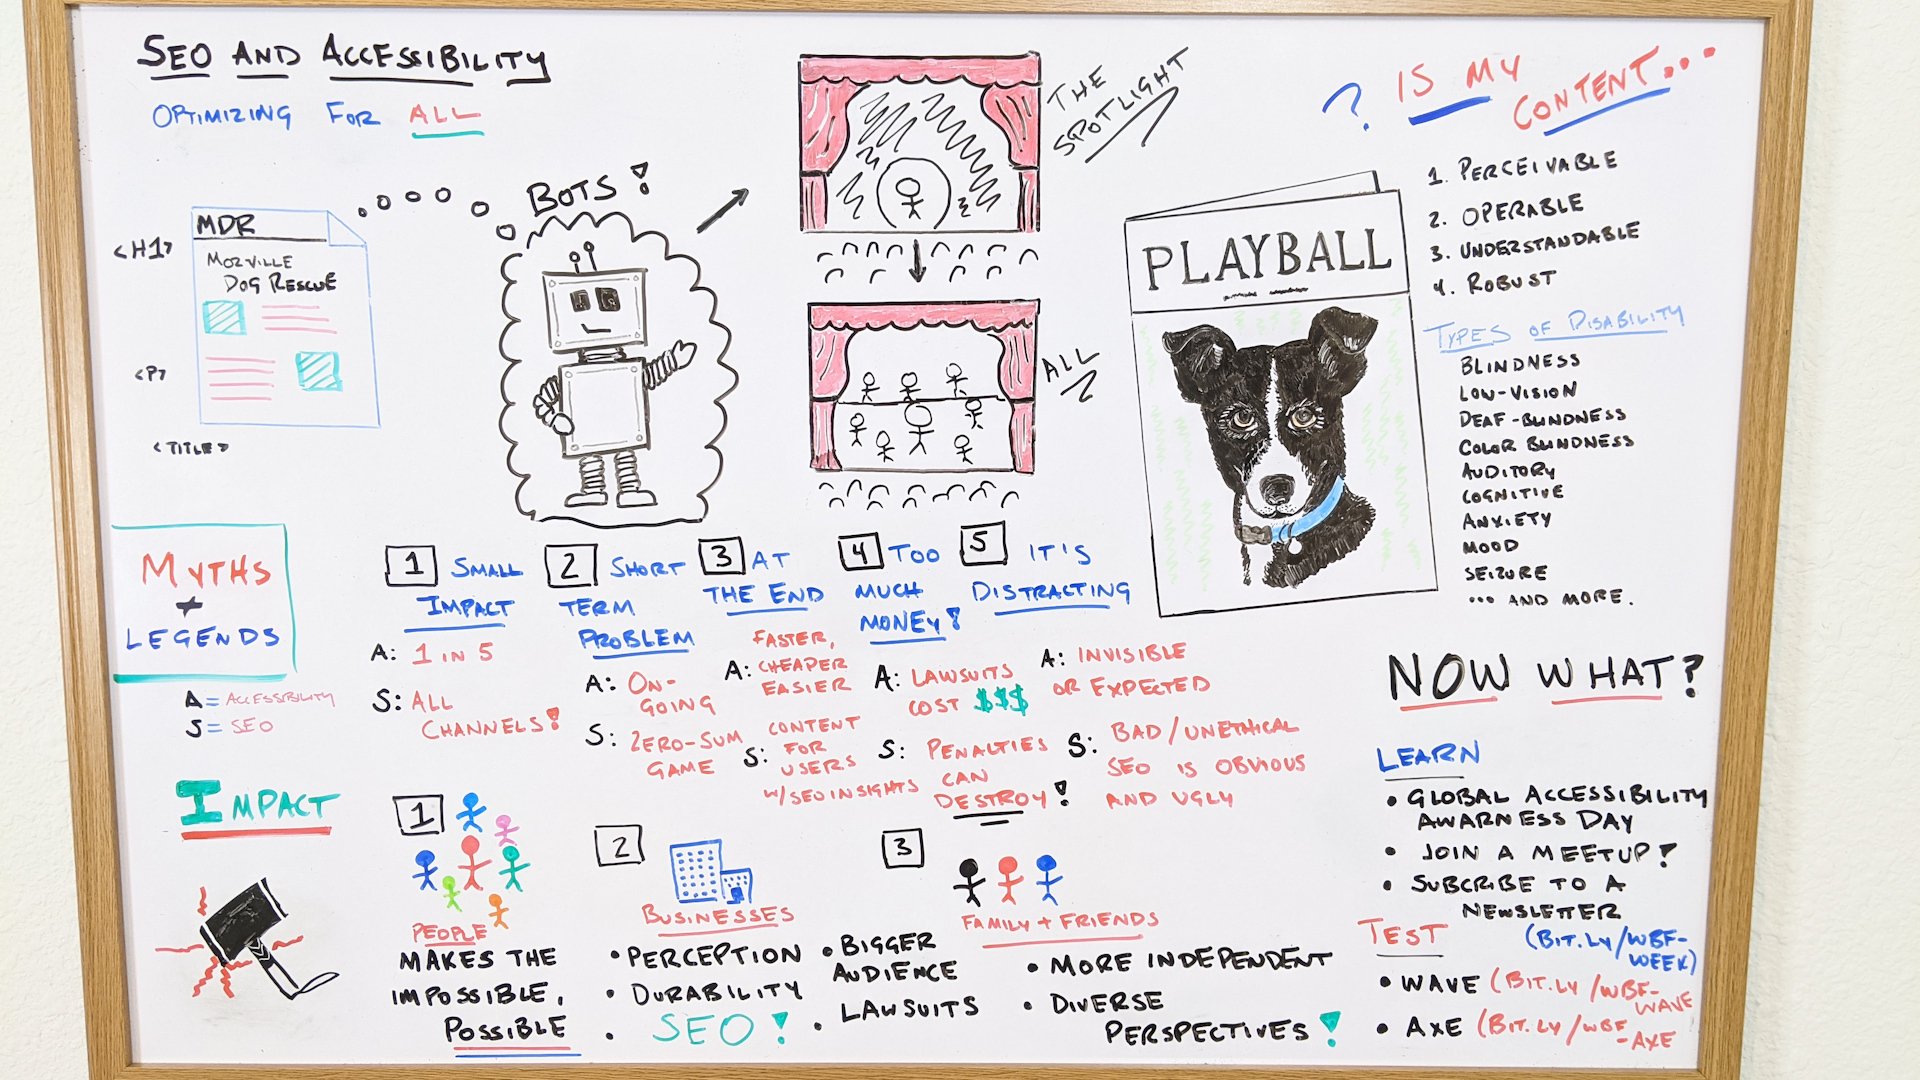 SEO AND ACCESSIBILITY
OPTIMIZING FOR ALL
MDR
MORVILLE
DOG RESCUE
<H1>
<P>
<TITLE>
BOTS!
THE
SPOTLIGHT
ALL
PLAYBALL
? IS MY
CONTENT...
1. PERCEIVABLE
2. OPERABLE
3. UNDERSTANDABLE
4. ROBUST
TYPES OF DISABILITY
BLINDNESS
LOW-VISION
DEAF-BLINDNESS
COLOR BLINDNESS
AUDITORY
COGNITIVE
ANXIETY
MOOD
SEIZURE
... AND MORE.
MYTHS
≠
LEGENDS
A = ACCESSIBILITY
S = SEO
1 SMALL
IMPACT
A: 1 IN 5
S: ALL
CHANNELS!
2 SHORT
TERM
PROBLEM
A: ON-
GOING
S: ZERO-SUM
GAME
3 AT
THE END
A: FASTER,
CHEAPER
EASIER
S: CONTENT
FOR
USERS
W/SEO INSIGHTS
4 TOO
MUCH
MONEY!
A: LAWSUITS
COST $$$
S: PENALTIES
CAN
DESTROY!
5 IT'S
DISTRACTING
A: INVISIBLE
OR EXPECTED
S: BAD/UNETHICAL
SEO IS OBVIOUS
AND UGLY
IMPACT
1
PEOPLE
MAKES THE
IMPOSSIBLE,
POSSIBLE
2
BUSINESSES
• PERCEPTION
• DURABILITY
• SEO!
• BIGGER
AUDIENCE
• LAWSUITS
3
FAMILY + FRIENDS
• MORE INDEPENDENT
• DIVERSE
PERSPECTIVES!
NOW WHAT?
LEARN
• GLOBAL ACCESSIBILITY
AWARNESS DAY
• JOIN A MEETUP!
• SUBCRIBE TO A
NEWSLETTER
(BIT.LY/WBF-
WEEK)
TEST
• WAVE (BIT.LY/WBF-
WAVE
• AXE (BIT.LY/WBF
-AXE